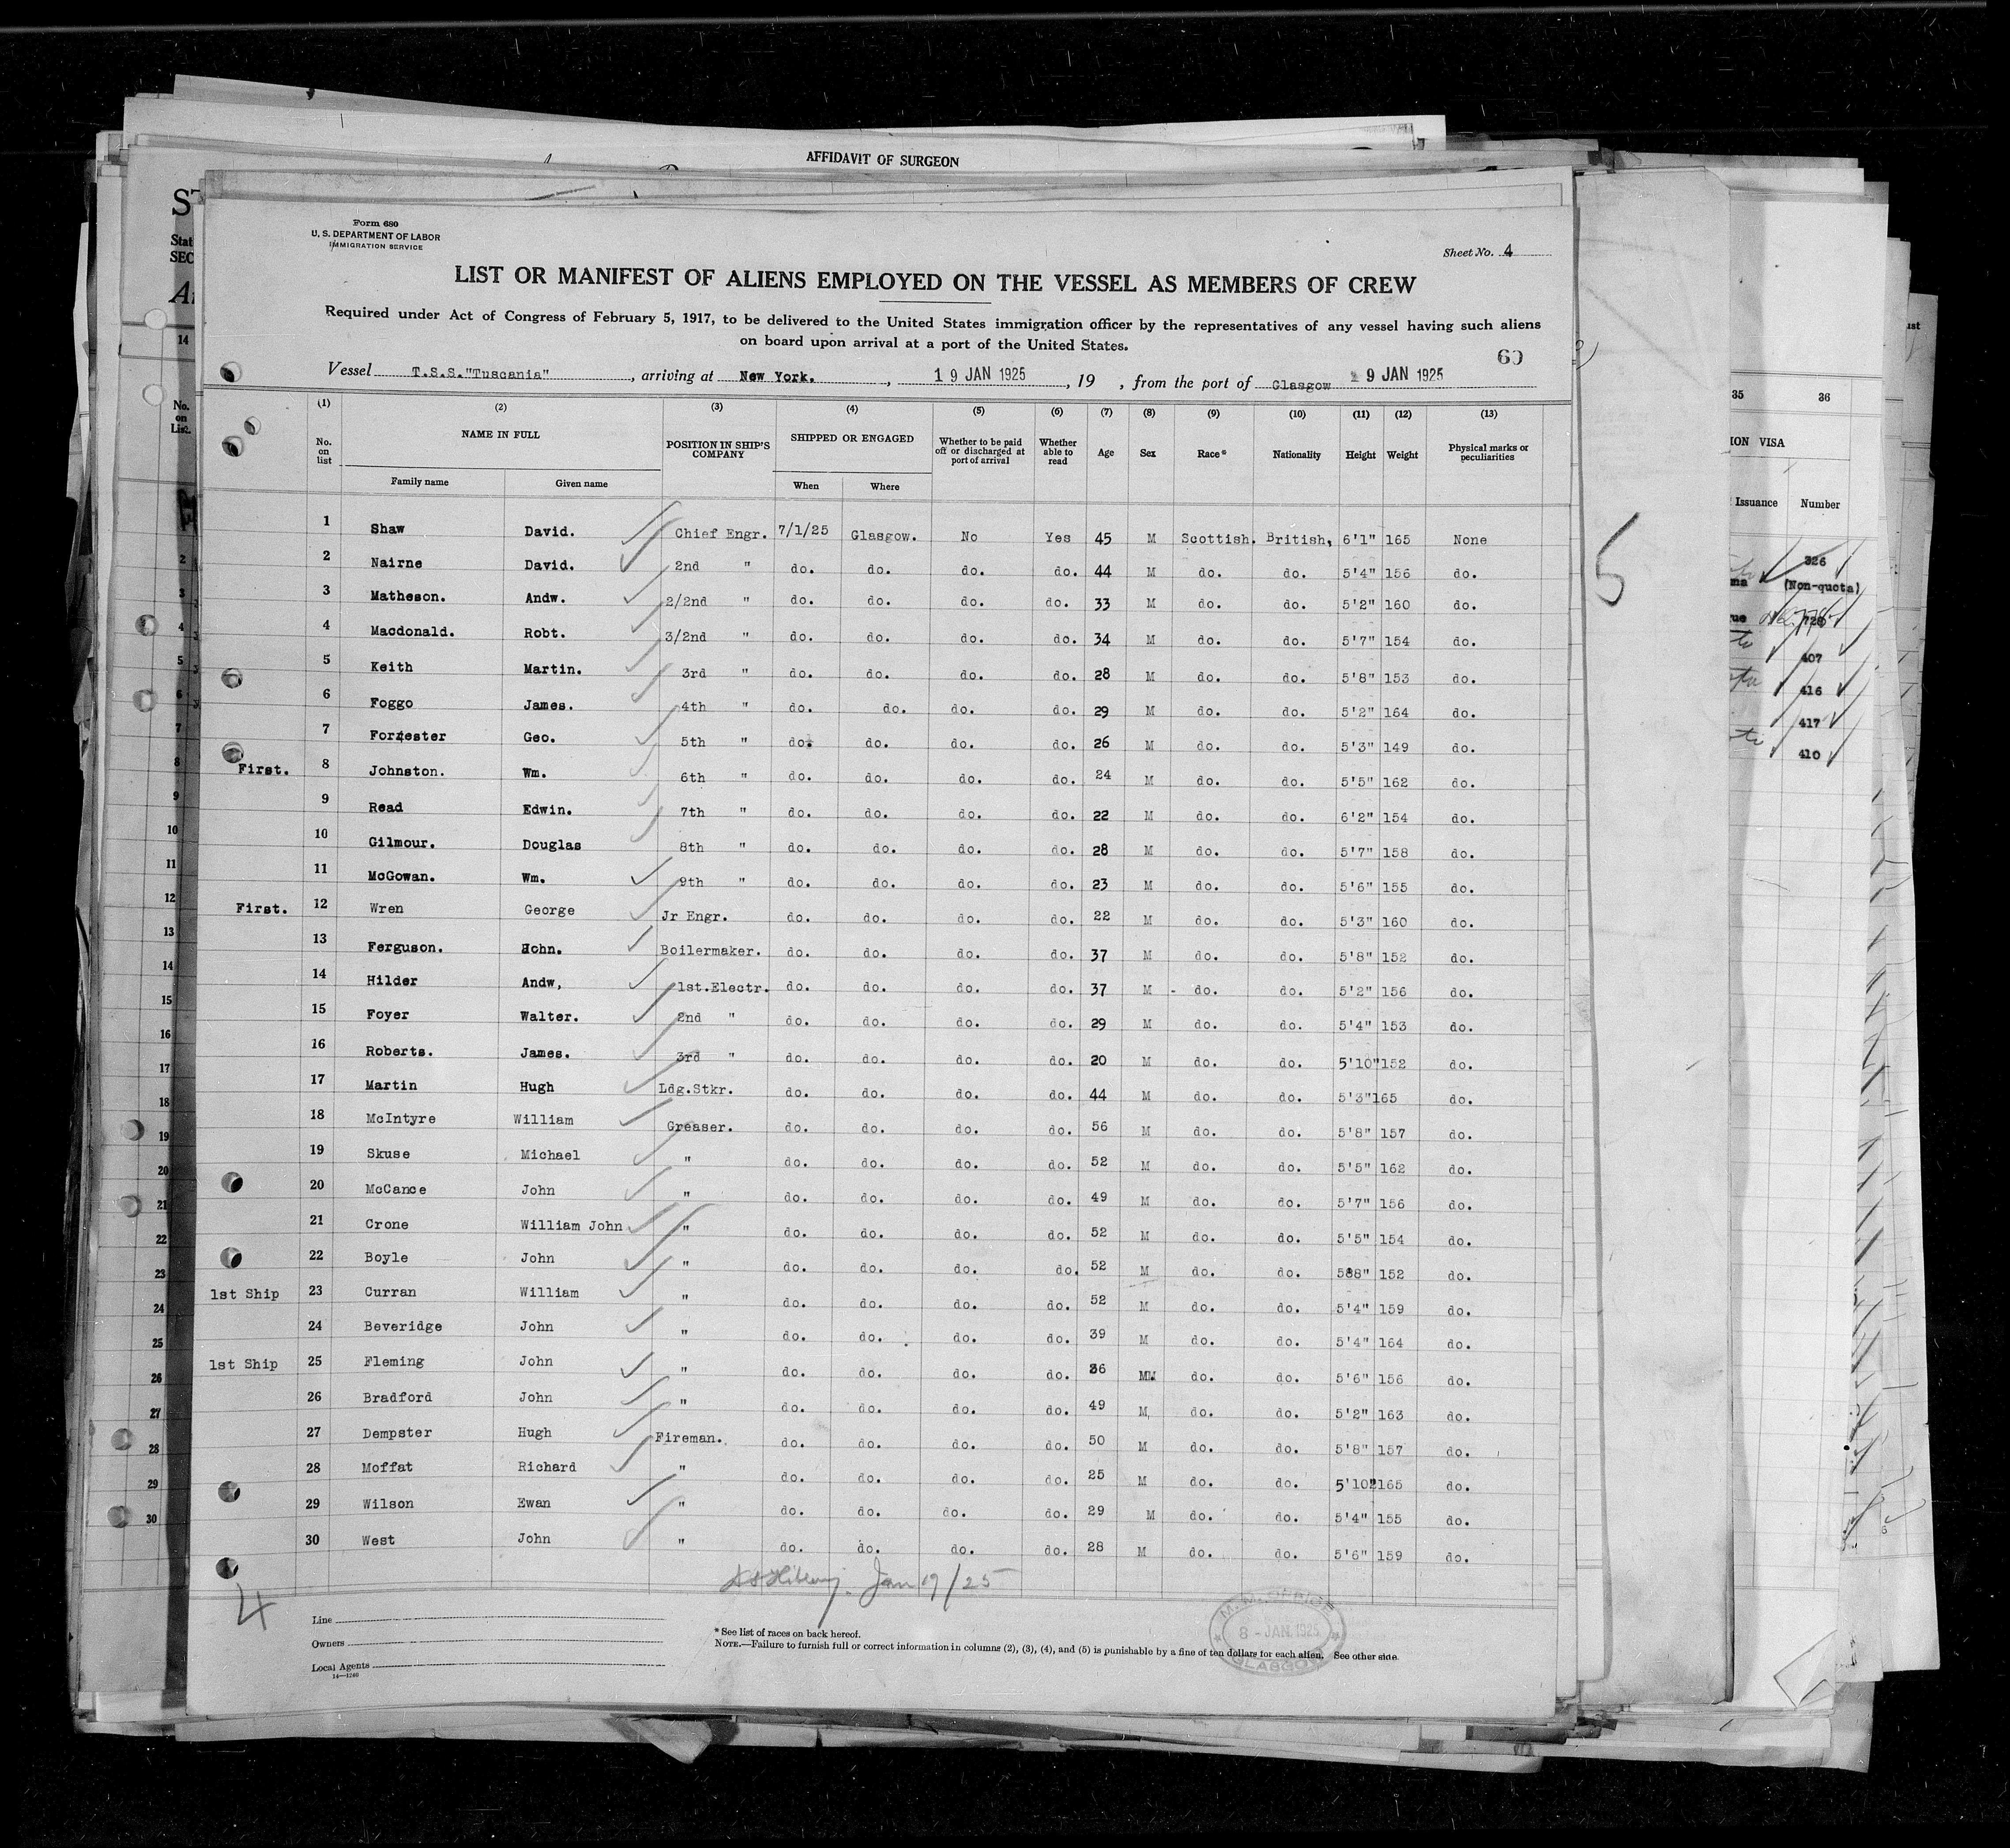 AFFIDAVIT OF SURGEON
Form 680
U. S. DEPARTMENT OF LABOR
IMMIGRATION SERVICE
Sheet No. 4
LIST OR MANIFEST OF ALIENS EMPLOYED ON THE VESSEL AS MEMBERS OF CREW
Required under Act of Congress of February 5, 1917, to be delivered to the United States immigration officer by the representatives of any vessel having such aliens
on board upon arrival at a port of the United States.
60
Vessel T.S.S."Tuscania", arriving at New York., 19 JAN 1925, 19 , from the port of Glasgow 9 JAN 1925
(1) (2) (3) (4) (5) (6) (7) (8) (9) (10) (11) (12) (13)
No. on list NAME IN FULL POSITION IN SHIP'S COMPANY SHIPPED OR ENGAGED Whether to be paid off or discharged at port of arrival Whether able to read Age Sex Race* Nationality Height Weight Physical marks or peculiarities
Family name Given name When Where
1 Shaw David. Chief Engr. 7/1/25 Glasgow. No Yes 45 M Scottish. British, 6'1" 165 None
2 Nairne David. 2nd " do. do. do. do. 44 M do. do. 5'4" 156 do.
3 Matheson. Andw. 2/2nd " do. do. do. do. 33 M do. do. 5'2" 160 do.
4 Macdonald. Robt. 3/2nd " do. do. do. do. 34 M do. do. 5'7" 154 do.
5 Keith Martin. 3rd " do. do. do. do. 28 M do. do. 5'8" 153 do.
6 Foggo James. 4th " do. do. do. do. 29 M do. do. 5'2" 164 do.
7 Forrester Geo. 5th " do. do. do. do. 26 M do. do. 5'3" 149 do.
First. 8 Johnston. Wm. 6th " do. do. do. do. 24 M do. do. 5'5" 162 do.
9 Read Edwin. 7th " do. do. do. do. 22 M do. do. 6'2" 154 do.
10 Gilmour. Douglas 8th " do. do. do. do. 28 M do. do. 5'7" 158 do.
11 McGowan. Wm. 9th " do. do. do. do. 23 M do. do. 5'6" 155 do.
First. 12 Wren George Jr Engr. do. do. do. do. 22 M do. do. 5'3" 160 do.
13 Ferguson. John. Boilermaker. do. do. do. do. 37 M do. do. 5'8" 152 do.
14 Hilder Andw, 1st.Electr. do. do. do. do. 37 M - do. do. 5'2" 156 do.
15 Foyer Walter. 2nd " do. do. do. do. 29 M do. do. 5'4" 153 do.
16 Roberts. James. 3rd " do. do. do. do. 20 M do. do. 5'10" 152 do.
17 Martin Hugh Ldg.Stkr. do. do. do. do. 44 M do. do. 5'3" 165 do.
18 McIntyre William Greaser. do. do. do. do. 56 M do. do. 5'8" 157 do.
19 Skuse Michael " do. do. do. do. 52 M do. do. 5'5" 162 do.
20 McCance John " do. do. do. do. 49 M do. do. 5'7" 156 do.
21 Crone William John " do. do. do. do. 52 M do. do. 5'5" 154 do.
22 Boyle John " do. do. do. do. 52 M do. do. 588" 152 do.
1st Ship 23 Curran William " do. do. do. do. 52 M do. do. 5'4" 159 do.
24 Beveridge John " do. do. do. do. 39 M do. do. 5'4" 164 do.
1st Ship 25 Fleming John " do. do. do. do. 36 MM do. do. 5'6" 156 do.
26 Bradford John " do. do. do. do. 49 M, do. do. 5'2" 163 do.
27 Dempster Hugh Fireman. do. do. do. do. 50 M do. do. 5'8" 157 do.
28 Moffat Richard " do. do. do. do. 25 M do. do. 5'10" 165 do.
29 Wilson Ewan " do. do. do. do. 29 M do. do. 5'4" 155 do.
30 West John " do. do. do. do. 28 M do. do. 5'6" 159 do.
Jan 19/25
4
Line
Owners
Local Agents
14—1240
* See list of races on back hereof.
NOTE.—Failure to furnish full or correct information in columns (2), (3), (4), and (5) is punishable by a fine of ten dollars for each alien. See other side.
M.M. OFFICE
8 - JAN. 1925
GLASGOW
5
35 36
ION VISA
Issuance Number
326
(Non-quota)
407
416
417
410